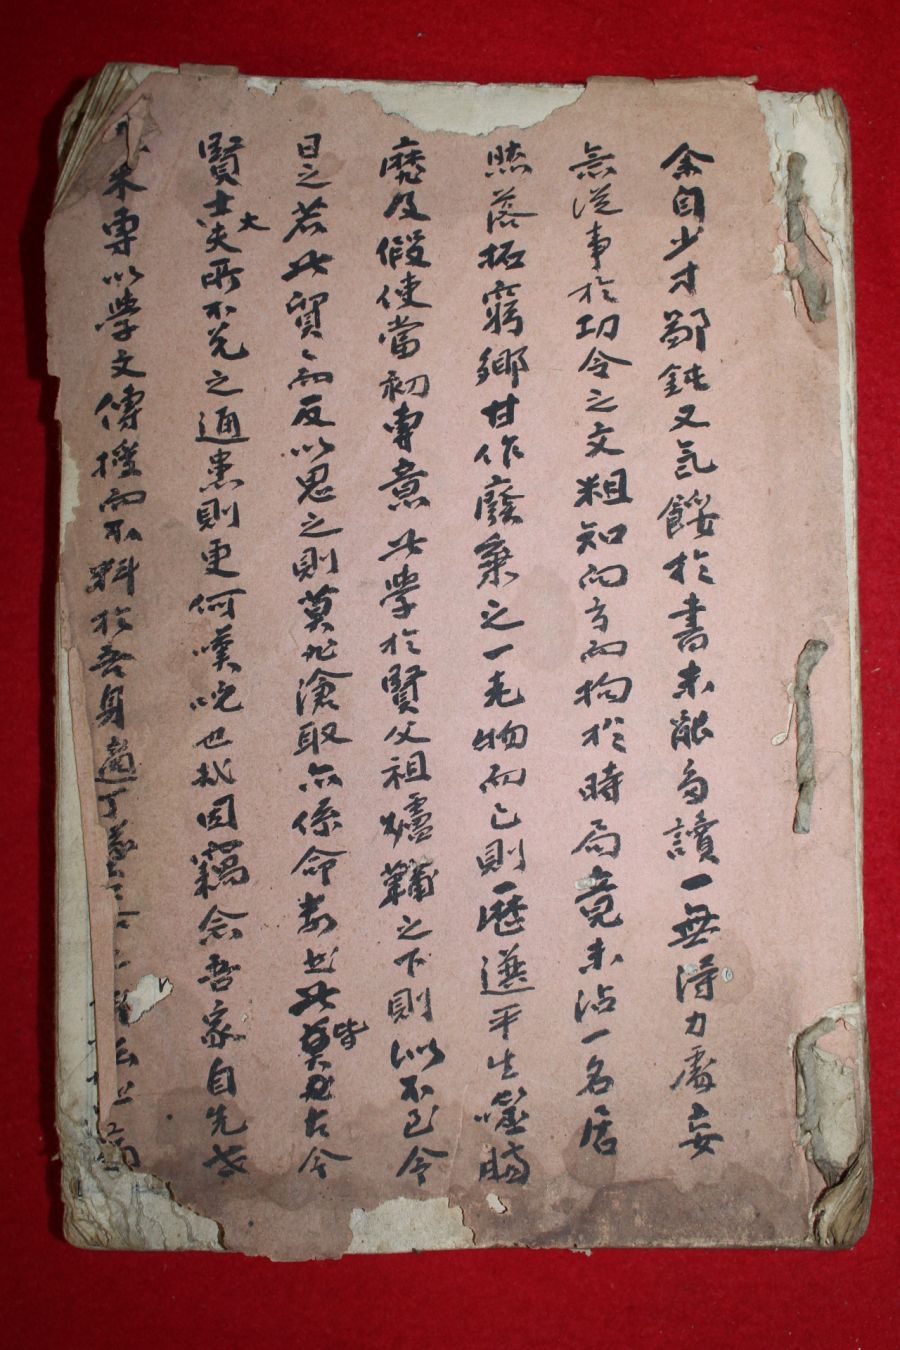 余自少才鄙鈍又氣餒於書未能多讀一無得力處妄
無從事於功令之文粗知向方而拘於時局竟未沾一名居
然落拓窮鄉甘作廢棄之一先物而已則歷選平生噬臍
靡及假使當初專意此學於賢父祖爐韛之下則似不至今
日之若此貿貿而反以思之則莫非滄取亦係命數出此皆莫非古今
賢士大夫所不免之通患則更何嘆咄也哉因竊念吾家自先世
來專以學文傳授而不料於吾身適丁